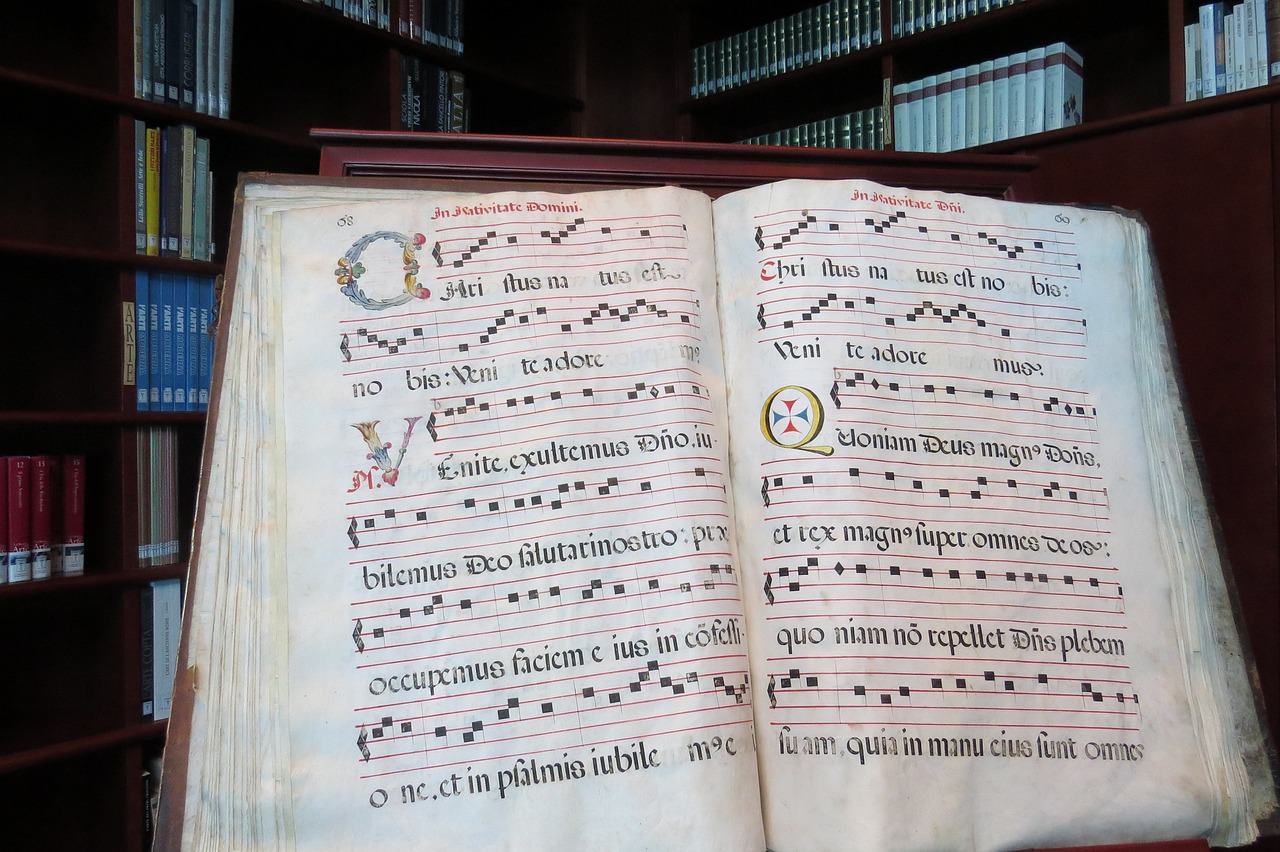 68
In Nativitate Domini.
CHri stus na tus est
no bis: Veni te adore m⁹
Ps. VEnite, exultemus Dño, iu-
bilemus Deo salutari nostro: præ
occupemus faciem e ius in cõfessi-
o ne, et in psalmis iubile m⁹ e
69
In Nativitate Dñi.
Chri stus na tus est no bis:
Veni te adore mus.
Quoniam Deus magn⁹ Dñs,
et rex magn⁹ super omnes deos:
quo niam nõ repellet Dñs plebem
suam, quia in manu eius sunt omnes
ARTE
L'ARTE
L'ARTE
L'ARTE
L'ARTE
L'ARTE